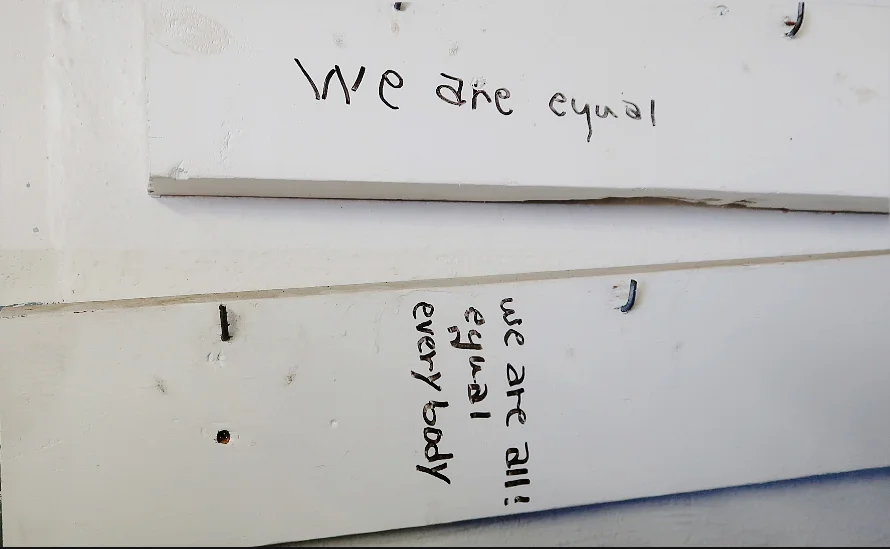 We are equal
we are all!
equal
everybody